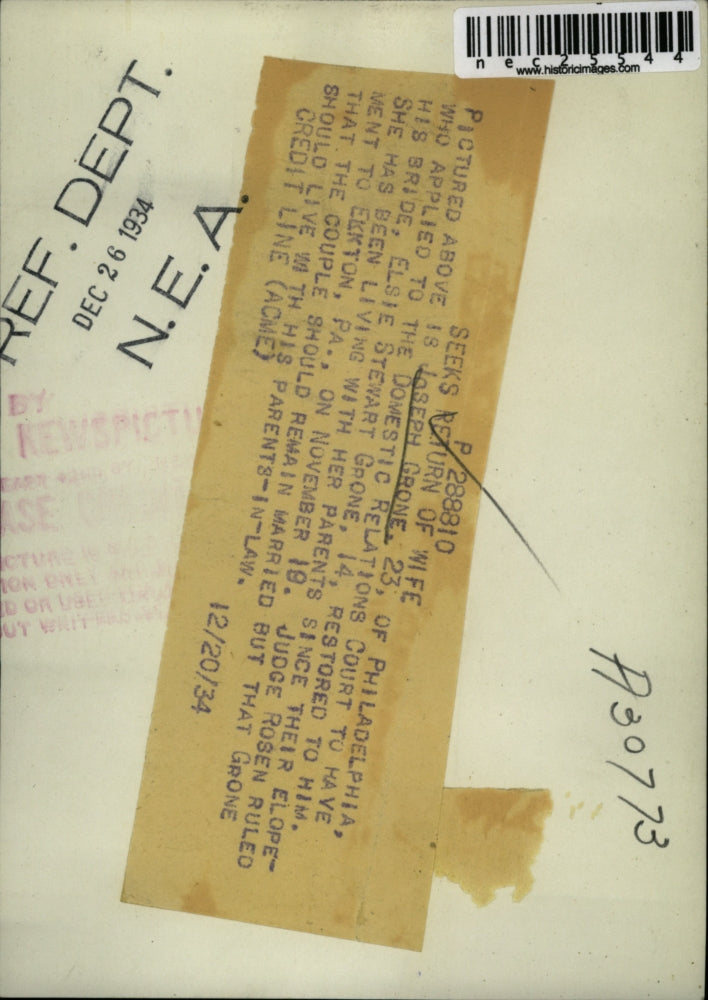 nec25544
www.historicimages.com
REF. DEPT.
DEC 26 1934
N. E. A.
P 288810
SEEKS RETURN OF WIFE
PICTURED ABOVE IS JOSEPH GRONE, 23, OF PHILADELPHIA,
WHO APPLIED TO THE DOMESTIC RELATIONS COURT TO HAVE
HIS BRIDE, ELSIE STEWART GRONE, 14, RESTORED TO HIM.
SHE HAS BEEN LIVING WITH HER PARENTS SINCE THEIR ELOPE-
MENT TO ELKTON, PA., ON NOVEMBER 19. JUDGE ROSEN RULED
THAT THE COUPLE SHOULD REMAIN MARRIED BUT THAT GRONE
SHOULD LIVE WITH HIS PARENTS-IN-LAW.
CREDIT LINE (ACME) 12/20/34
A30773
BY
NEWSPICTU